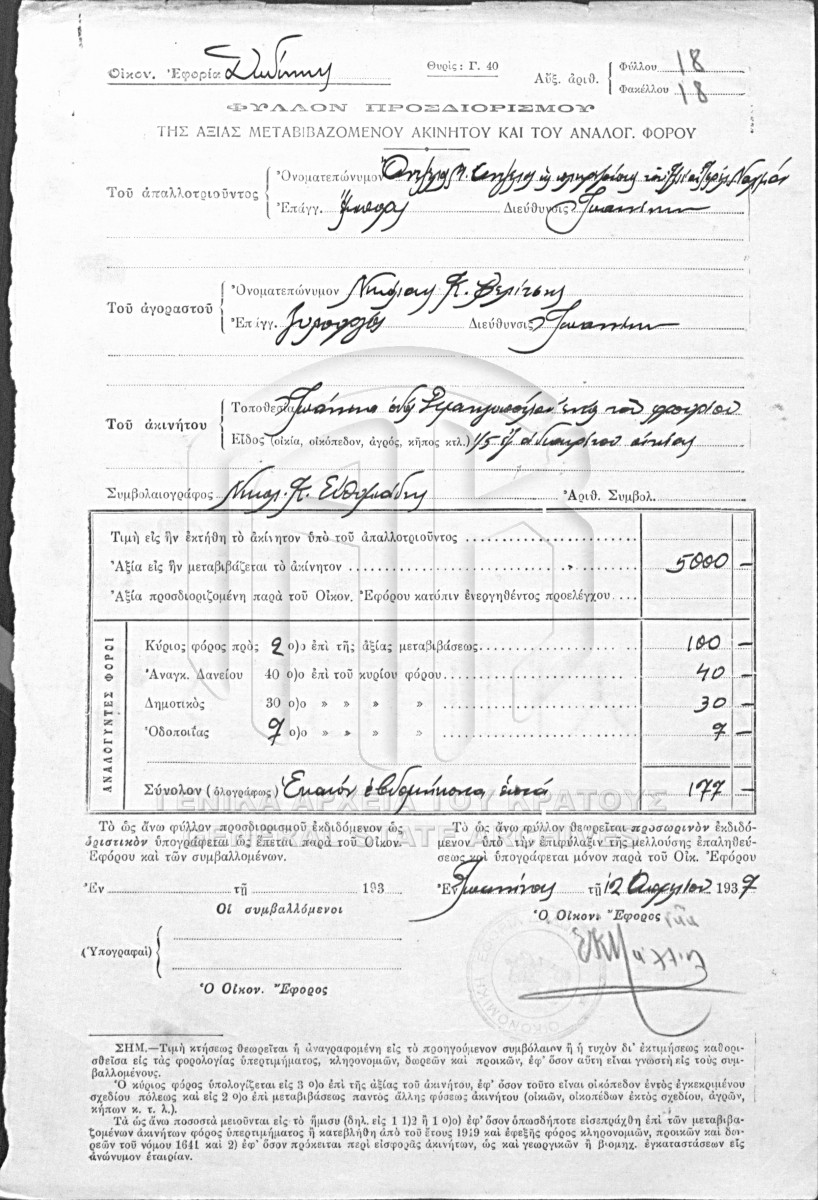 Οἰκον. Ἐφορία
Θυρίς: Γ. 40
Αὔξ. ἀριθ. { Φύλλου 18
Φακέλλου 18
ΦΥΛΛΟΝ ΠΡΟΣΔΙΟΡΙΣΜΟΥ
ΤΗΣ ΑΞΙΑΣ ΜΕΤΑΒΙΒΑΖΟΜΕΝΟΥ ΑΚΙΝΗΤΟΥ ΚΑΙ ΤΟΥ ΑΝΑΛΟΓ. ΦΟΡΟΥ
Τοῦ ἀπαλλοτριοῦντος { Ὀνοματεπώνυμον
Ἐπάγγ. Διεύθυνσις
Τοῦ ἀγοραστοῦ { Ὀνοματεπώνυμον Νικόλαος Κ.
Ἐπάγγ. Διεύθυνσις
Τοῦ ἀκινήτου { Τοποθεσία Ἰωάννινα ὁδὸς ἐντὸς τοῦ φρουρίου
Εἶδος (οἰκία, οἰκόπεδον, ἀγρός, κῆπος κτλ.) 1/5 ἐξ ἀδιαιρέτου οἰκίας
Συμβολαιογράφος Νικολ. Κ. Εὐθυμιάδης Ἀριθ. Συμβολ.
Τιμὴ εἰς ἣν ἐκτήθη τὸ ἀκίνητον ὑπὸ τοῦ ἀπαλλοτριοῦντος
Ἀξία εἰς ἣν μεταβιβάζεται τὸ ἀκίνητον 5000 —
Ἀξία προσδιοριζομένη παρὰ τοῦ Οἰκον. Ἐφόρου κατόπιν ἐνεργηθέντος προελέγχου
ΑΝΑΛΟΓΟΥΝΤΕΣ ΦΟΡΟΙ
Κύριος φόρος πρὸς 2 ο)ο ἐπὶ τῆς ἀξίας μεταβιβάσεως 100 —
Ἀναγκ. Δανείου 40 ο)ο ἐπὶ τοῦ κυρίου φόρου 40 —
Δημοτικὸς 30 ο)ο » » » » 30 —
Ὁδοποιΐας 7 ο)ο » » » » 7 —
Σύνολον (ὁλογράφως) Ἑκατόν ἑβδομήκοντα ἑπτά 177 —
ΓΕΝΙΚΑ ΑΡΧΕΙΑ ΤΟΥ ΚΡΑΤΟΥΣ
GREEK STATE ARCHIVES
Τὸ ὡς ἄνω φύλλον προσδιορισμοῦ ἐκδιδόμενον ὡς
ὁριστικὸν ὑπογράφεται ὡς ἕπεται παρὰ τοῦ Οἰκον.
Ἐφόρου καὶ τῶν συμβαλλομένων.
Ἐν τῇ 193
Οἱ συμβαλλόμενοι
(Ὑπογραφαὶ) {
Ὁ Οἰκον. Ἔφορος
Τὸ ὡς ἄνω φύλλον θεωρεῖται προσωρινὸν ἐκδιδό-
μενον ὑπὸ τὴν ἐπιφύλαξιν τῆς μελλούσης ἐπαληθεύ-
σεως καὶ ὑπογράφεται μόνον παρὰ τοῦ Οἰκ. Ἐφόρου
Ἐν Ἰωαννίνοις τῇ 12 Ἀπριλίου 1937
Ὁ Οἰκον. Ἔφορος
ΣΗΜ.—Τιμὴ κτήσεως θεωρεῖται ἡ ἀναγραφομένη εἰς τὸ προηγούμενον συμβόλαιον ἢ ἡ τυχὸν δι' ἐκτιμήσεως καθορι-
σθεῖσα εἰς τὰς φορολογίας ὑπερτιμήματος, κληρονομιῶν, δωρεῶν καὶ προικῶν, ἐφ' ὅσον αὕτη εἶναι γνωστὴ εἰς τοὺς συμ-
βαλλομένους.
Ὁ κύριος φόρος ὑπολογίζεται εἰς 3 ο)ο ἐπὶ τῆς ἀξίας τοῦ ἀκινήτου, ἐφ' ὅσον τοῦτο εἶναι οἰκόπεδον ἐντὸς ἐγκεκριμένου
σχεδίου πόλεως καὶ εἰς 2 ο)ο ἐπὶ μεταβιβάσεως παντὸς ἄλλης φύσεως ἀκινήτου (οἰκιῶν, οἰκοπέδων ἐκτὸς σχεδίου, ἀγρῶν,
κήπων κ. τ. λ.).
Τὰ ὡς ἄνω ποσοστὰ μειοῦνται εἰς τὸ ἥμισυ (δηλ. εἰς 1 1)2 ἢ 1 ο)ο) ἐφ' ὅσον ὁπωσδήποτε εἰσεπράχθη ἐπὶ τῶν μεταβιβα-
ζομένων ἀκινήτων φόρος ὑπερτιμήματος ἢ κατεβλήθη ἀπὸ τοῦ ἔτους 1919 καὶ ἐφεξῆς φόρος κληρονομιῶν, προικῶν καὶ δω-
ρεῶν τοῦ νόμου 1641 καὶ 2) ἐφ' ὅσον πρόκειται περὶ εἰσφορᾶς ἀκινήτων, ὡς καὶ γεωργικῶν ἢ βιομηχ. ἐγκαταστάσεων εἰς
ἀνώνυμον ἑταιρίαν.